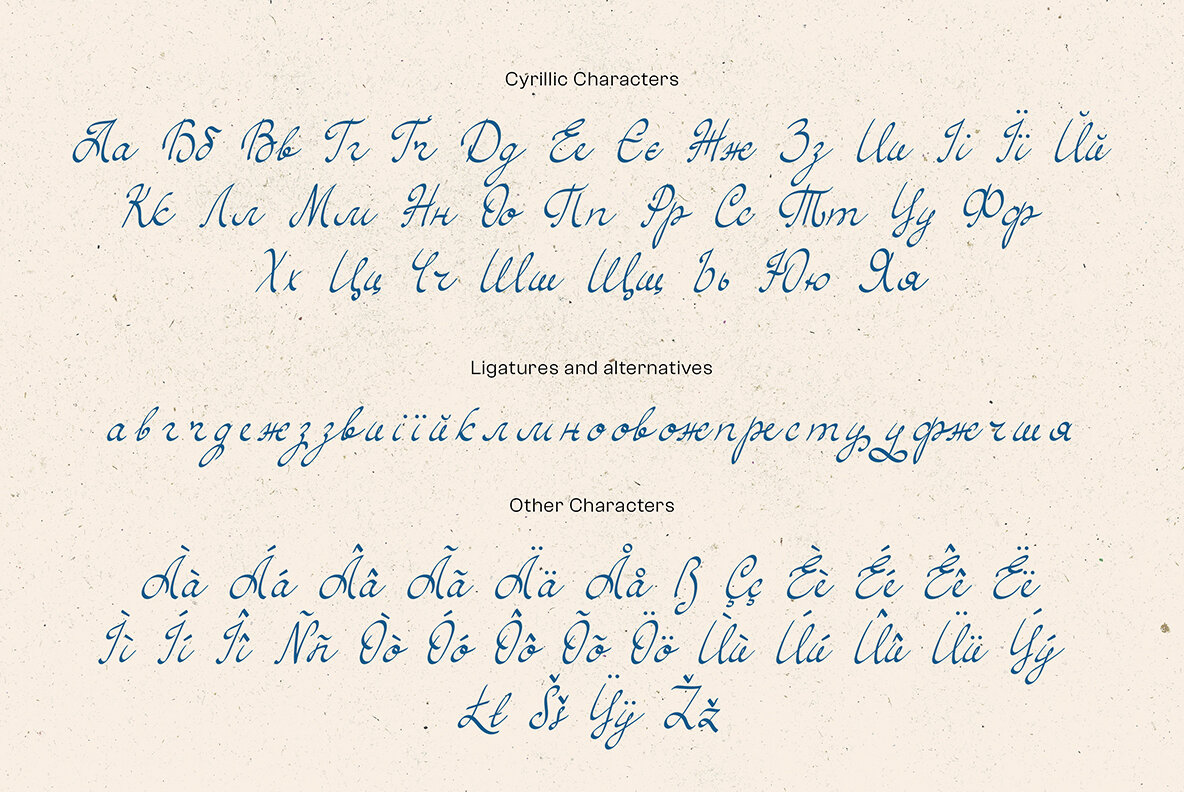 Cyrillic Characters
Аа Бб Вв Гг Ґґ Дд Ее Єє Жж Зз Ии Іі Її Йй
Кк Лл Мм Нн Оо Пп Рр Сс Тт Уу Фф
Хх Цц Чч Шш Щщ Ьь Юю Яя
Ligatures and alternatives
авгґдежззвиіїйклмноовожпрестууфжечшя
Other Characters
Àà Áá Ââ Ãã Ää Åå ß Çç Èè Éé Êê Ëë
Ìì Íí Îî Ññ Òò Óó Ôô Õõ Öö Ùù Úú Ûû Üü Ýý
Łł Šš Ÿÿ Žž